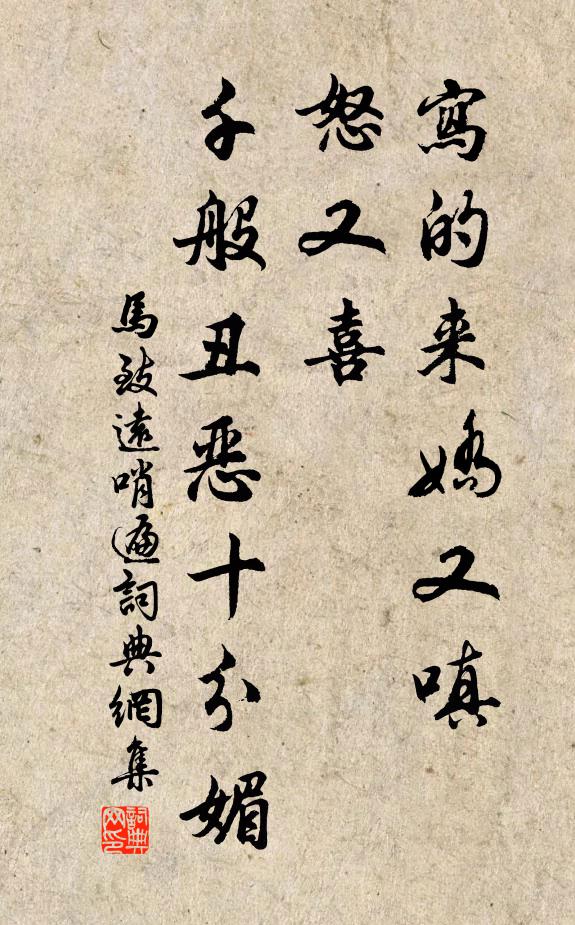 寫的来嬌又嗔
怒又喜
千般丑惡十分媚
馬致遠哨遍詞典網集
詞典网印